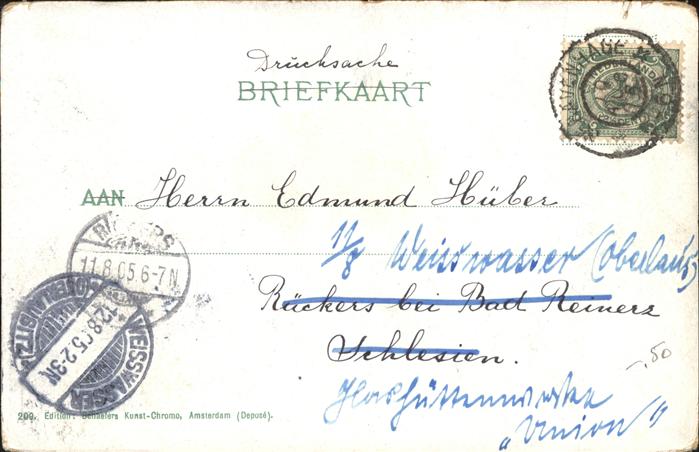 Drucksache
BRIEFKAART
AAN Herrn Edmund Hüber
11/8 Weisswasser (Oberlaus.)
Rückers bei Bad Reinerz
Schlesien.
Glashüttenwerke
"Union"
-.50
RÜCKERS
11.8.05.6-7N
WEISSWASSER
(OBERLAUSITZ)
12.8.05.2-3N
209. Edition: Schaefers Kunst-Chromo, Amsterdam (Deposé).